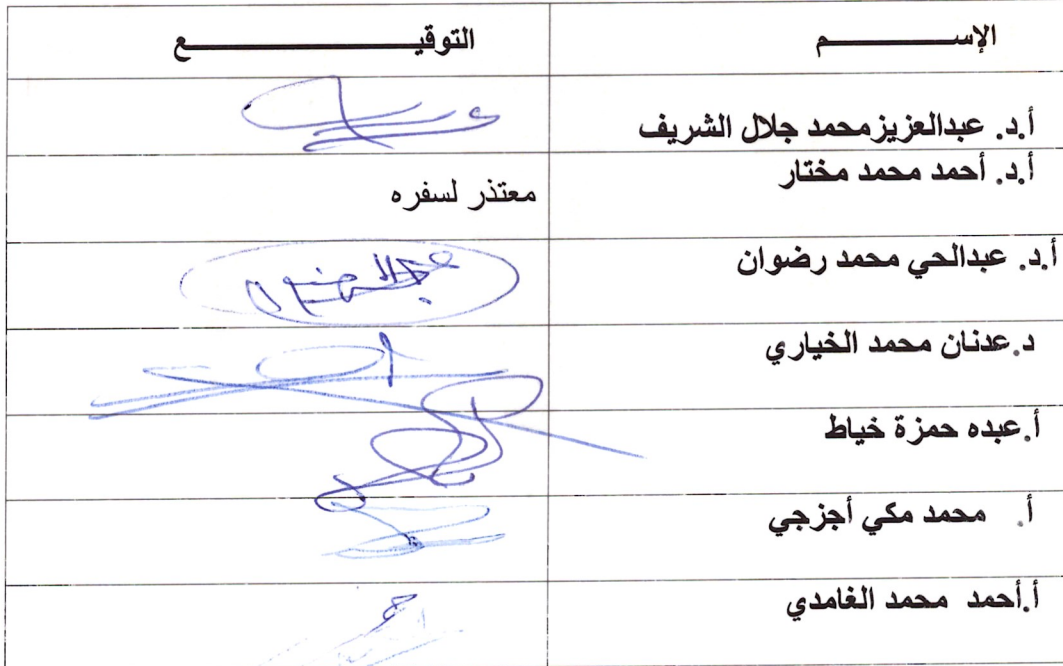 الإســـــــم التوقيـــــــــــــع
أ.د. عبدالعزيزمحمد جلال الشريف
أ.د. أحمد محمد مختار معتذر لسفره
أ.د. عبدالحي محمد رضوان
د.عدنان محمد الخياري
أ.عبده حمزة خياط
أ. محمد مكي أجزجي
أ.أحمد محمد الغامدي